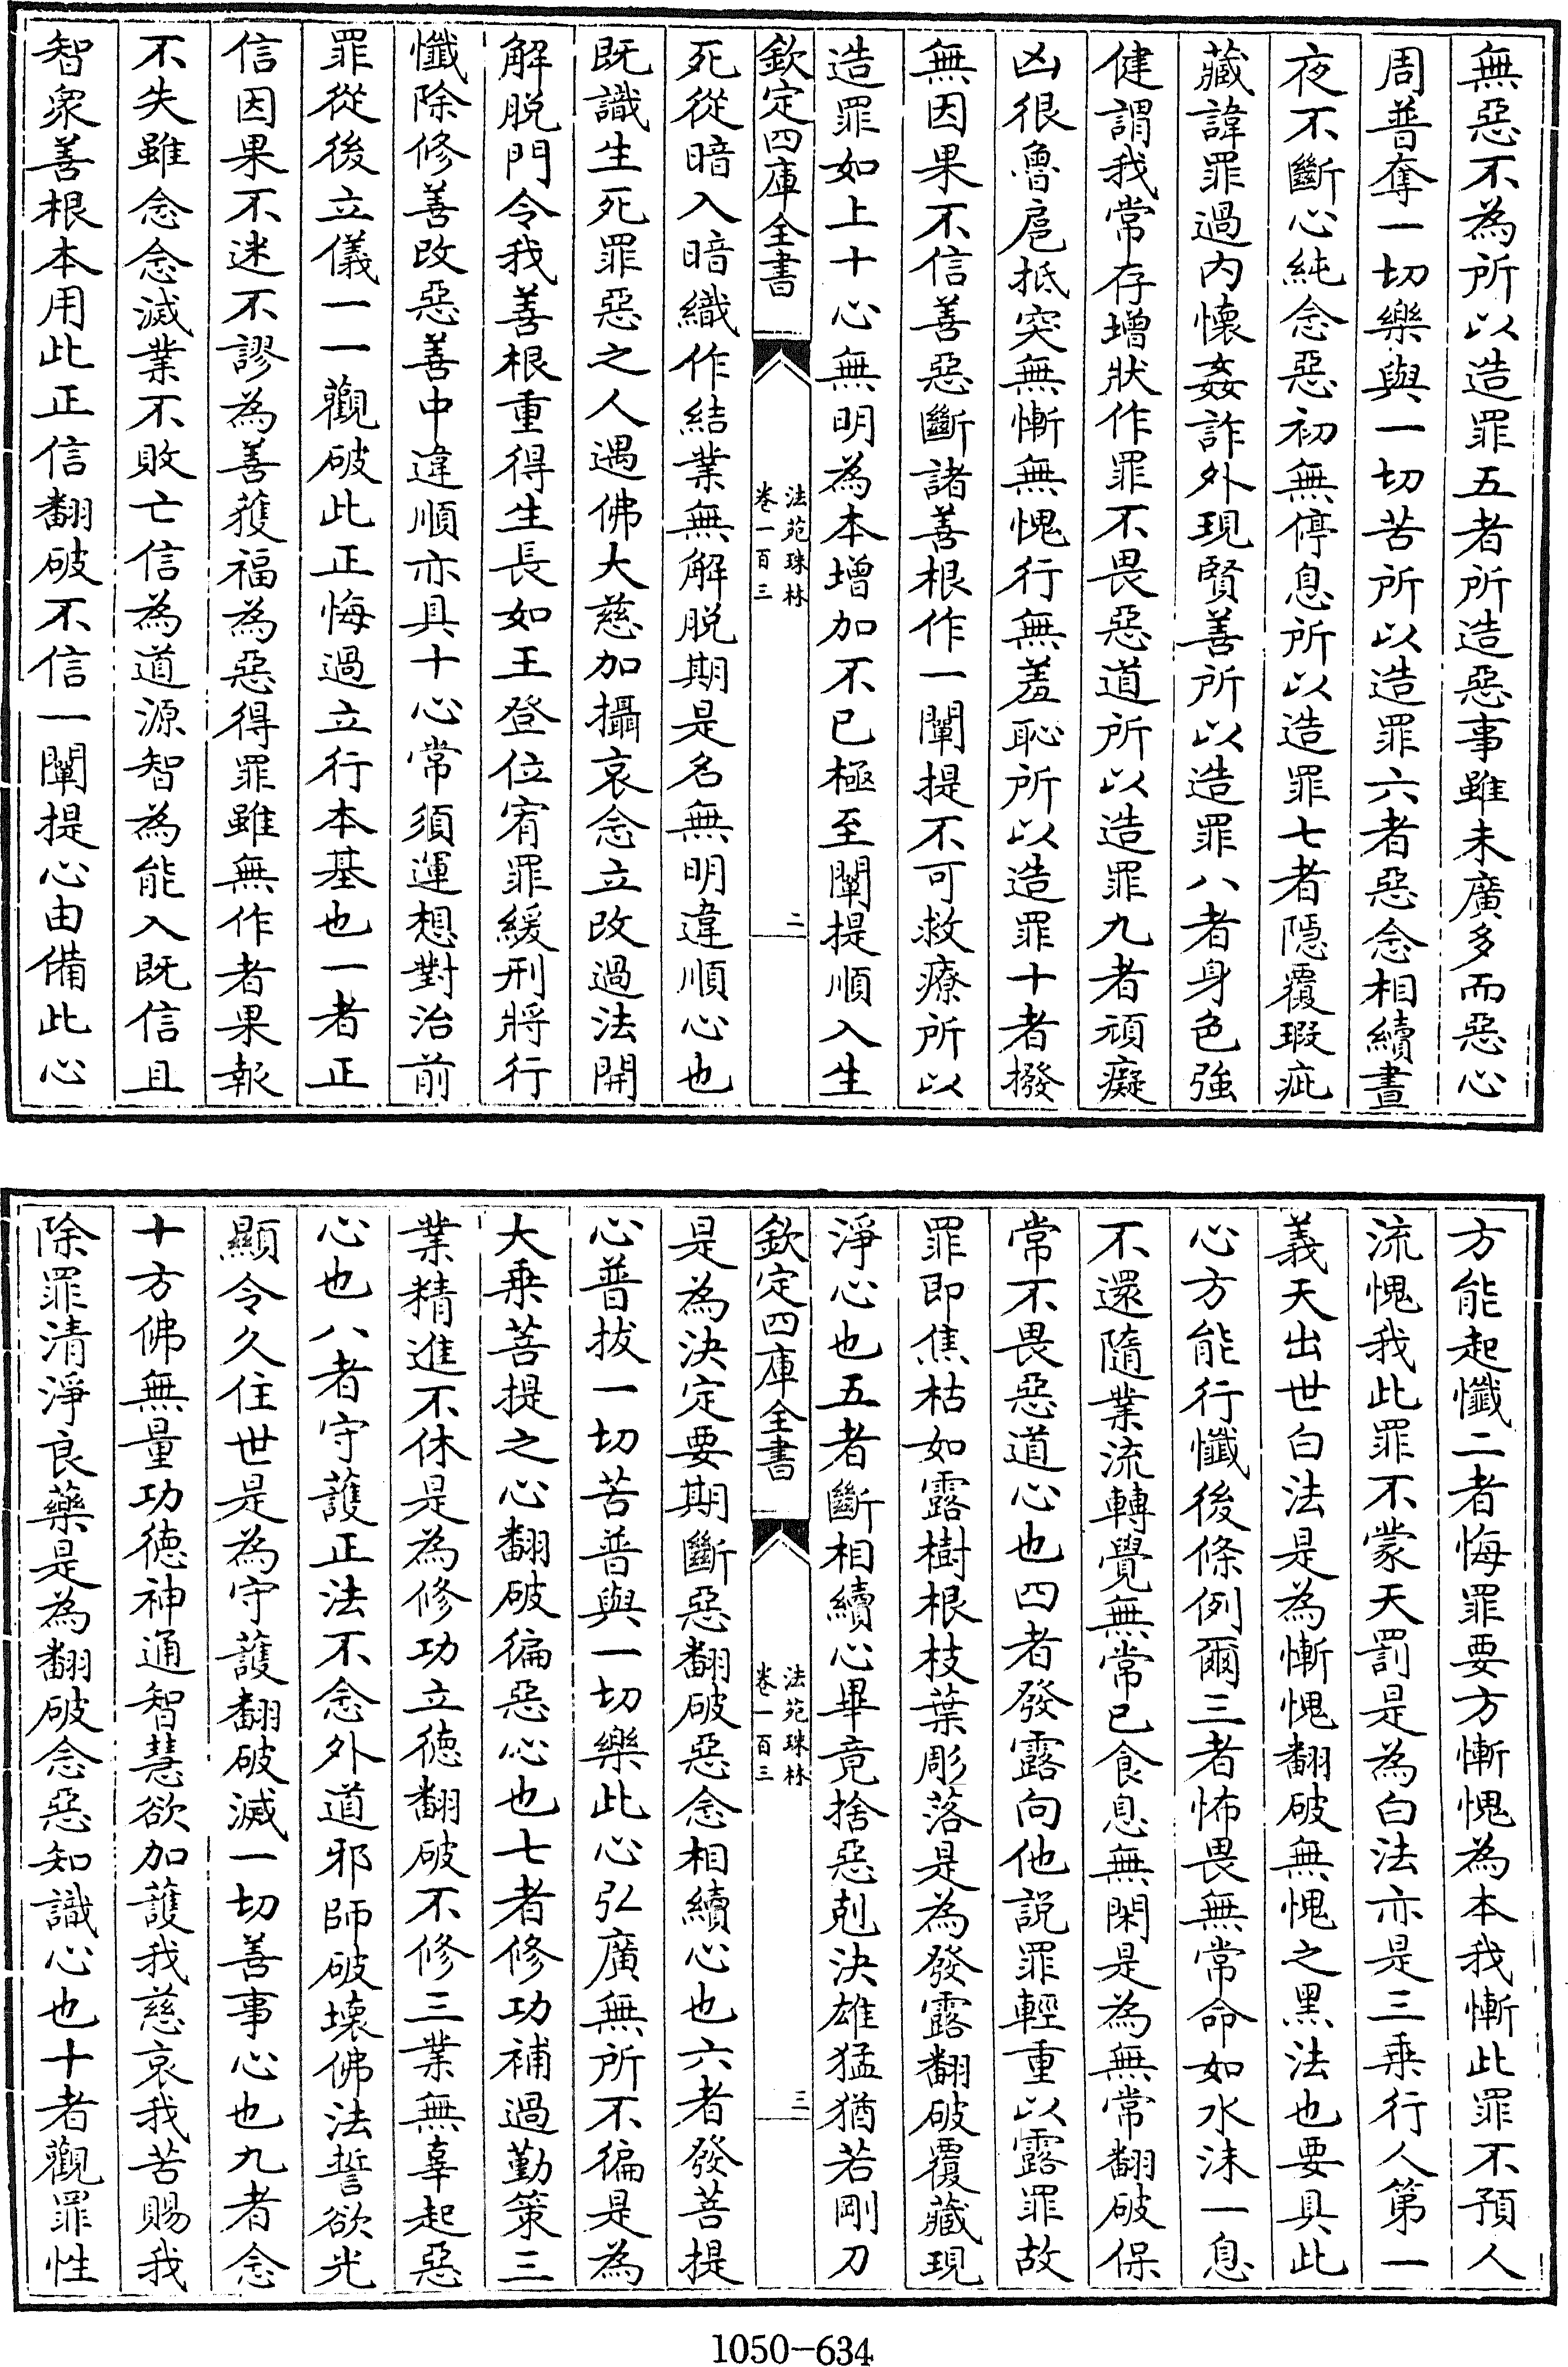 無惡不為所以造罪五者所造惡事雖未廣多而惡心
周普奪一切樂與一切苦所以造罪六者惡念相續晝
夜不斷心純念惡初無停息所以造罪七者隱覆瑕疵
藏諱罪過内懷姦詐外現賢善所以造罪八者身色強
健謂我常存增狀作罪不畏惡道所以造罪九者頑癡
凶很魯扈抵突無慚無愧行無羞恥所以造罪十者撥
無因果不信善惡斷諸善根作一闡提不可救療所以
造罪如上十心無明為本增加不已極至闡提順入生
欽定四庫全書
法苑珠林
卷一百三
二
死從暗入暗織作結業無解脱期是名無明違順心也
既識生死罪惡之人遇佛大慈加攝哀念立改過法開
解脱門令我善根重得生長如王登位宥罪緩刑將行
懺除修善改惡善中違順亦具十心常須運想對治前
罪從後立儀一一觀破此正悔過立行本基也一者正
信因果不迷不謬為善獲福為惡得罪雖無作者果報
不失雖念念滅業不敗亡信為道源智為能入既信且
智衆善根本用此正信翻破不信一闡提心由備此心
方能起懺二者悔罪要方慚愧為本我慚此罪不預人
流愧我此罪不蒙天罰是為白法亦是三乘行人第一
義天出世白法是為慚愧翻破無愧之黑法也要具此
心方能行懺後條例爾三者怖畏無常命如水沫一息
不還隨業流轉覺無常已食息無閑是為無常翻破保
常不畏惡道心也四者發露向他説罪輕重以露罪故
罪即焦枯如露樹根枝葉彫落是為發露翻破覆藏現
淨心也五者斷相續心畢竟捨惡剋決雄猛猶若剛刀
欽定四庫全書
法苑珠林
卷一百三
三
是為決定要期斷惡翻破惡念相續心也六者發菩提
心普拔一切苦普與一切樂此心弘廣無所不徧是為
大乘菩提之心翻破徧惡心也七者修功補過勤策三
業精進不休是為修功立徳翻破不修三業無辜起惡
心也八者守護正法不念外道邪師破壊佛法誓欲光
顯令久住世是為守護翻破滅一切善事心也九者念
十方佛無量功徳神通智慧欲加護我慈哀我苦賜我
除罪清淨良藥是為翻破念惡知識心也十者觀罪性
1050-634